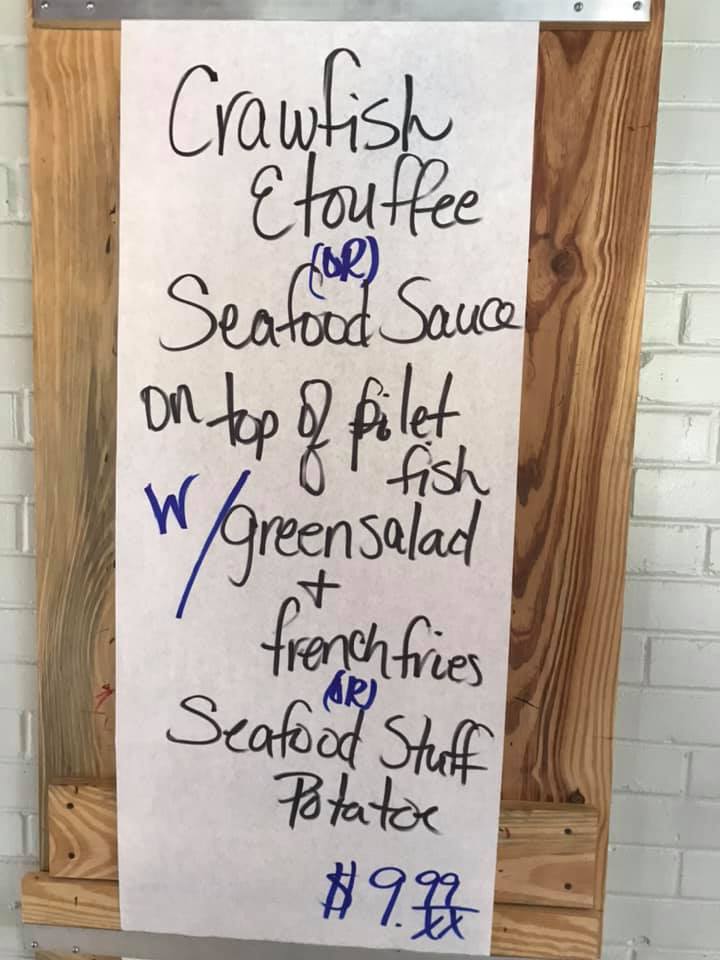 Crawfish
Etouffee
(OR)
Seafood Sauce
on top of filet
fish
w/green salad
+
french fries
(OR)
Seafood Stuff
Potatoe
$9.99/xx